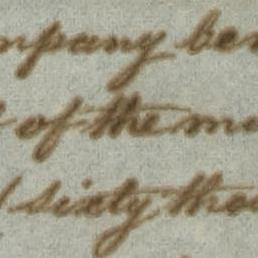 mpany ben
of the mu
sixty thou